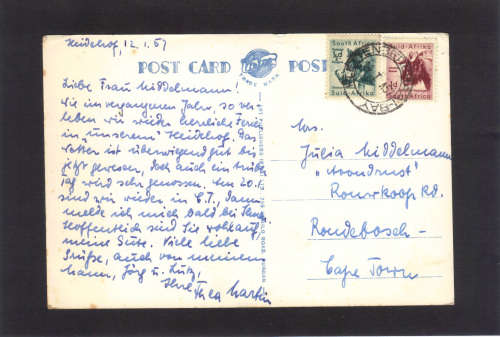 Heidehof, 12.1.57
Liebe Frau Middelmann!
Wie im vergangenen Jahr, so ver-
leben wir wieder herrliche Ferien
in "unserem" Heidehof. Das
Wetter ist überwiegend gut bis
jetzt gewesen, doch auch ein trüber
Tag wird sehr genossen. Am 20.
sind wir wieder in C.T., dann
melde ich mich bald bei Ihnen.
Hoffentlich sind Sie wohlauf,
meine Gute. Viele liebe
Grüße, auch von meinem
Mann, Jörg u. Lutz,
Ihre
Thea Martin
POST CARD
POST
South Africa
Suid-Afrika
Suid-Afrika
South Africa
Mrs.
Julia Middelmann
"Avondrust"
Rouwkoop Rd.
Rondebosch -
Cape Town